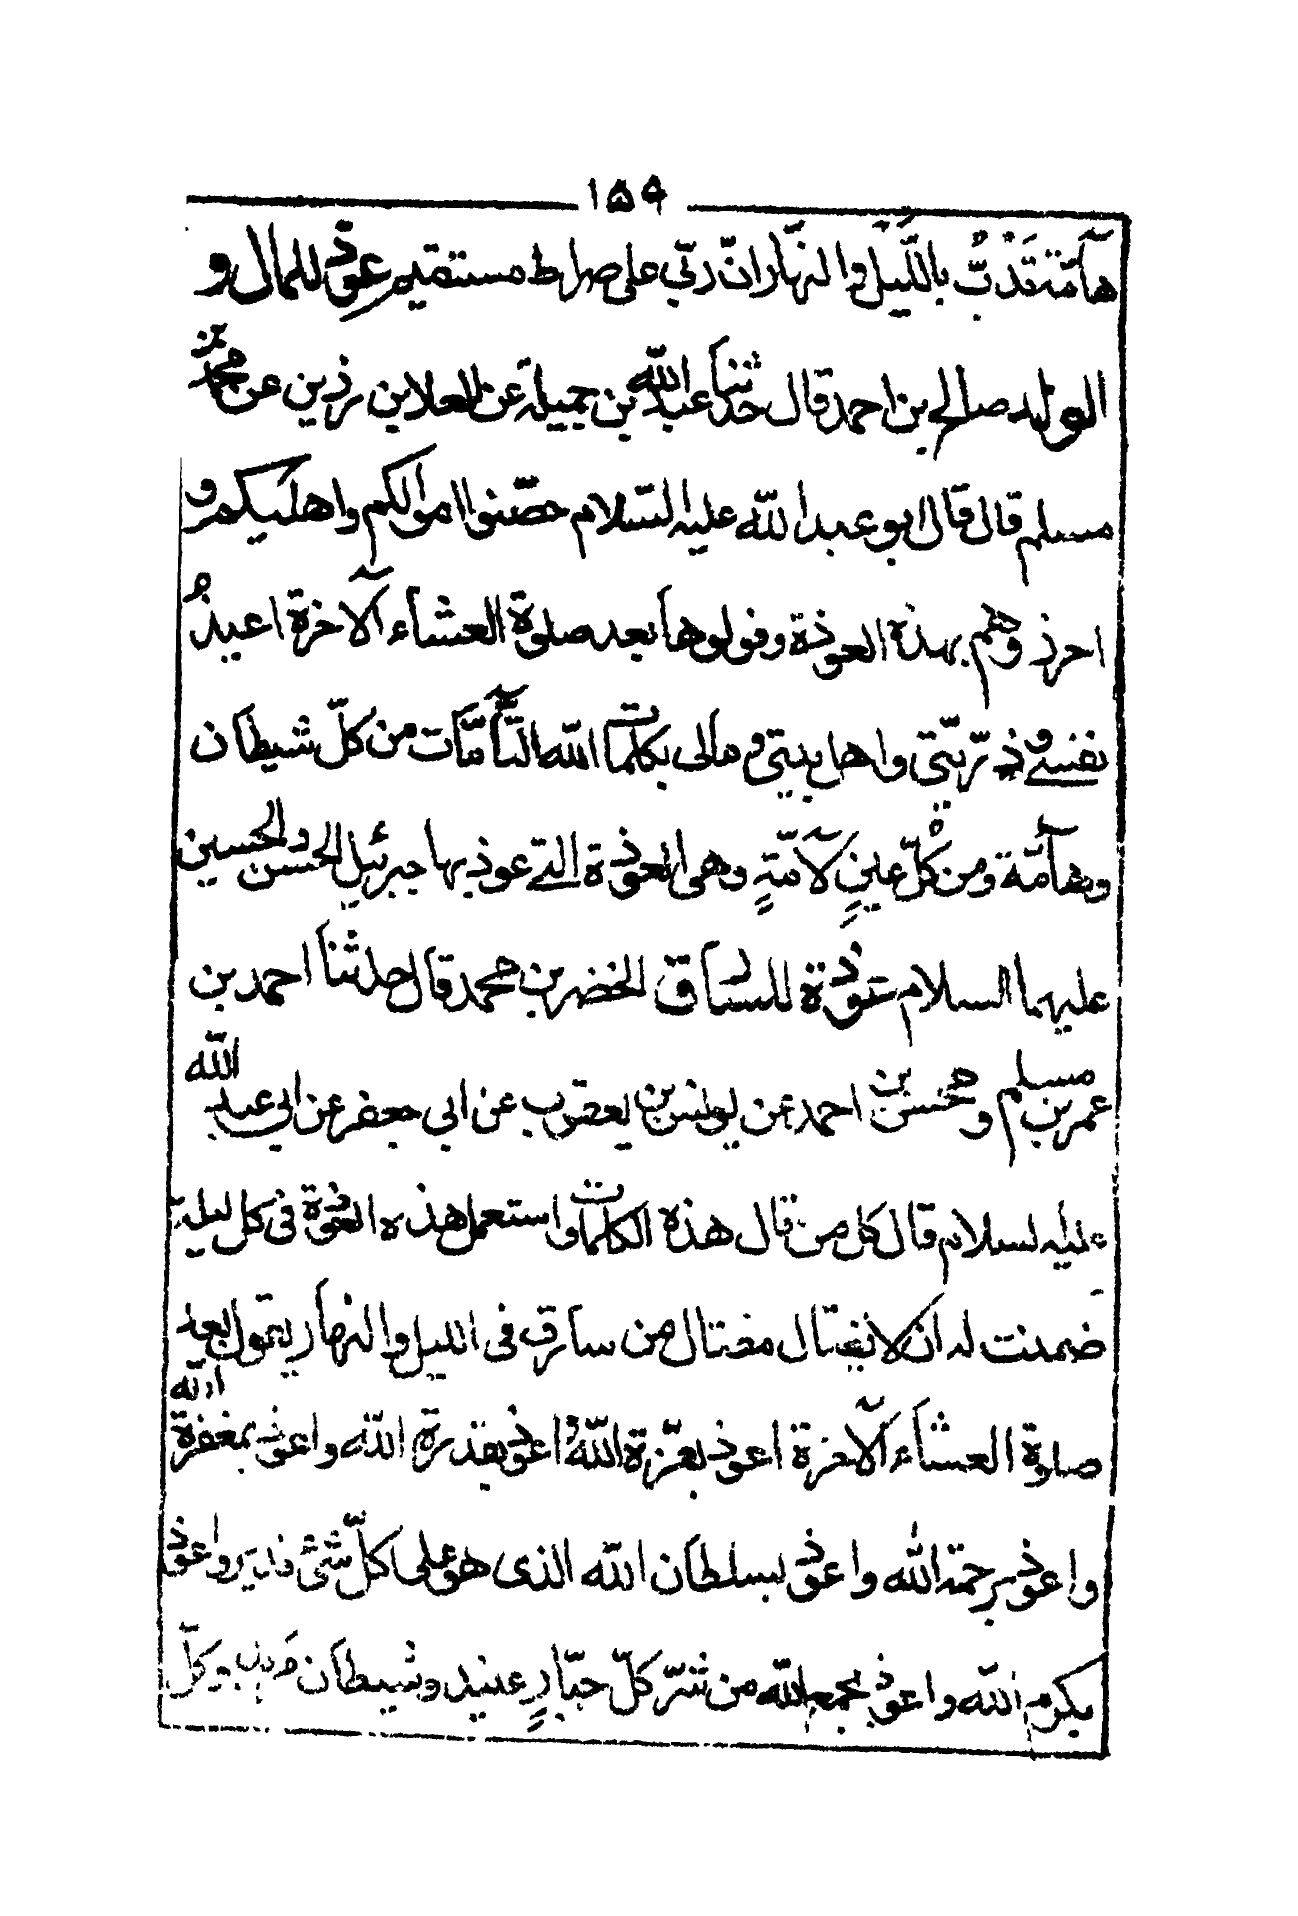 ١۵٩
هآمّة تَدُبُّ باللَّيل والنهّار انّ ربّي علی صراط مستقیم عوذة للمال و
الولد صالح بن احمد قال حدثنا عبدالله بن جميلة عن العلابن رزين عن محمد بن
مسلم قال قال ابوعبدالله علیه السّلام حصّنوا اموالکم واهلیکم و
احرزوهم بهذه العوذة وقولوها بعد صلوة العشاء الآخرة اعيذُ
نفسی وذرّیّتی واهل بیتی و مالی بکلمات الله التّآمّات من کلّ شیطان
وهآمّة ومن كُلّ عينٍ لآمّةٍ وهی العوذة التی عوذ بها جبرئیل الحسن والحسین
علیهما السلام عوذة للسراق الخضر بن محمد قال حدثنا احمد بن
عمر بن مسلم ومحسن بن احمد عن یونس بن یعقوب عن ابی جعفر عن ابی عبد الله
علیه لسلام قال کل من قال هذه الکلمات واستعمل هذه العوذة فی کل لیلة
ضمنت له ان لا یغتال مغتال من سارق فی اللیل والنهار یقول بعد
صلوة العشاء الآخرة اعوذ بعزّة اللّهُ اعوذ بقدرة الله واعوذ بمغفرة الله
واعوذ برحمة الله واعوذ بسلطان الله الذی هو علی کلّ شیء قدیر واعوذ
بکرم الله واعوذ بجمع الله من شرّ کلّ جبّارٍ عنید وشیطان مرید وکلّ